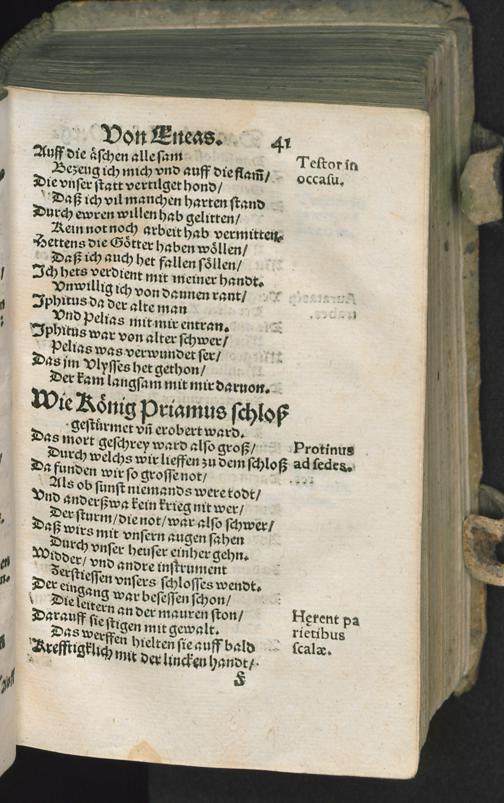 Von Eneas. 41
Auff die äschen alle sam
Bezeug ich mich vnd auff die flam̃/
Testor in
occasu.
Die vnser statt vertilget hond/
Daß ich vil manchen harten stand
Durch ewren willen hab gelitten/
Kein not noch arbeit hab vermitten.
Hettens die Götter haben wöllen/
Daß ich auch het fallen söllen/
Ich hets verdient mit meiner handt.
Vnwillig ich von dannen rant/
Iphitus da der alte man
Vnd Pelias mit mir entran.
Iphitus war von alter schwer/
Pelias was verwundet ser/
Das jm Vlysses het gethon/
Der kam langsam mit mir daruon.
Wie König Priamus schloß
gestürmet vñ erobert ward.
Das mort geschrey ward also groß/
Durch welchs wir lieffen zu dem schloß
Protinus
ad sedes.
Da funden wir so grosse not/
Als ob sunst niemands were todt/
Vnd anderßwa kein krieg nit wer/
Der sturm/ die not/ war also schwer/
Daß wirs mit vnsern augen sahen
Durch vnser heuser einher gehn.
Widder/ vnd andre instrument
Zerstiessen vnsers schlosses wendt.
Der eingang war besessen schon/
Die leitern an der mauren ston/
Hęrent pa
rietibus
scalæ.
Darauff sie stigen mit gewalt.
Das werffen hielten sie auff bald
Krefftigklich mit der lincken handt/
F